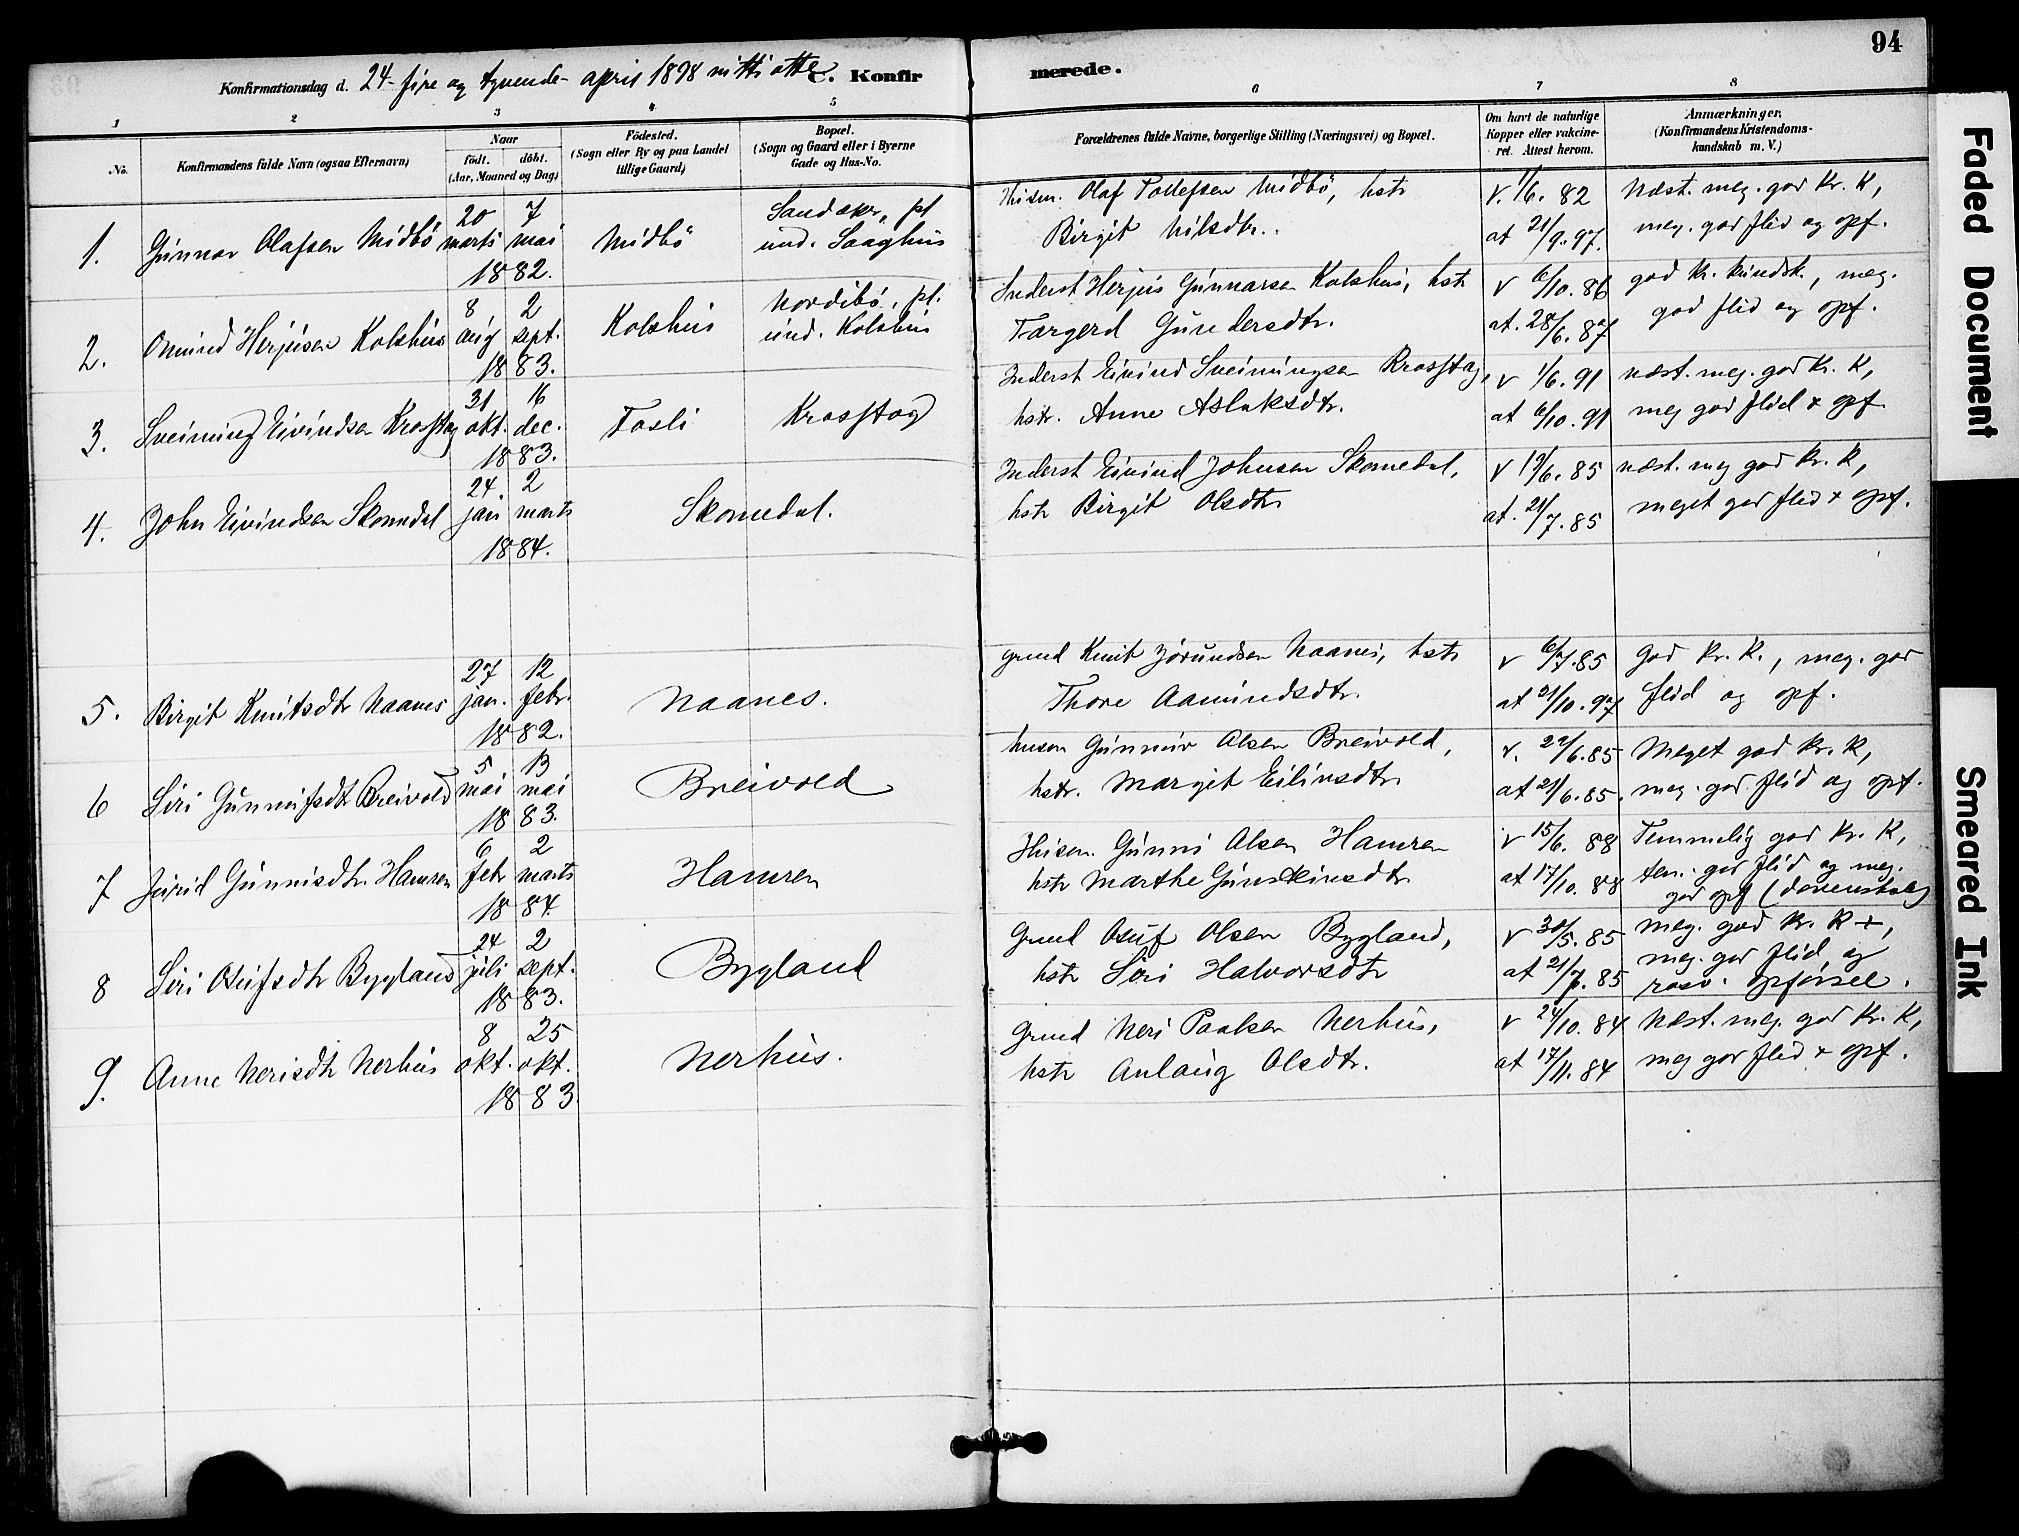 94
Konfirmationsdag d. 24- fire og tyvende- april 1898 nitti otte C. Konfirmerede.
1 2 3 4 5 6 7 8
No. Konfirmandens fulde Navn (ogsaa Efternavn) Naar födt. döbt. (Aar, Maaned og Dag) Födested. (Sogn eller By og paa Landet tillige Gaard) Bopæl. (Sogn og Gaard eller i Byerne Gade og Hus-No. Forældrenes fulde Navne, borgerlige Stilling (Næringsvei) og Bopæl. Om havt de naturlige Kopper eller vakcineret. Attest herom. Anmærkninger. (Konfirmandens Kristendomskundskab m. V.)
1. Gunnar Olafsen Midbö 20 marts 7 mai 1882. Midbö Sandaker, pl. und. Saaghus Husm. Olaf Tollefsen Midbö, hstr Birgit Nilsdtr. v. 1/6. 82 at 21/9. 97. Næst. meg. god Kr. K, meg. god flid og opf.
2. Omund Herjusen Kolshus 8 aug 2 sept. 1883. Kolshus Nordibö, pl. und. Kolshus Inderst Herjus Gunnarsen Kolshus, hstr Targerd Gundersdtr. v 6/10. 86 at. 28/6. 87 god kr. kundsk., meg. god flid og opf.
3. Sveinung Eivindsen Krosstag 31 okt. 16 dec. 1883. Fosli Krosstag Inderst Eivind Sveinungsen Krosstag, hstr. Anne Aslaksdtr. v 1/6. 91 at 6/10. 91 næst. meg. god Kr. K, meg god flid + opf.
4. John Eivindsen Skomedal 24. jan 2 marts 1884. Skomedal. Inderst Eivind Johnsen Skomedal, hstr Birgit Olsdtr v 19/6. 85 at. 21/7. 85 næst. meg god Kr. K, meget god flid + opf.
5. Birgit Knutsdtr Naanes 27 jan. 12 febr. 1882. Naanes. Grund Knut Jorundsen Naanes, hstr Thore Aamundsdtr. v 6/7. 85 at 21/10. 97 God Kr. K., meg. god flid og opf.
6 Siri Gunnufsdtr Breivold 5 mai 13 mai 1883. Breivold husm Gunnuv Olsen Breivold, hstr. Margit Eilivsdtr. v. 22/6. 85 at 21/6. 85. Meget god Kr. K, meg. god flid og opf.
7 Jurid Gunnisdtr Hamren 6 febr 2 marts 1884. Hamren Husm. Gunni Olsen Hamren hstr Marthe v 15/6. 88 at 17/10. 88 Temmelig god Kr. K, tem. god flid og meg. god opf
8 Siri Osufsdtr Bygland 24 juli 2 sept. 1883. Bygland Grund Osuf Olsen Bygland, hstr Siri Halvorsdtr v 30/5. 85 at 21/7. 85 meg. god Kr. K +, meg. god flid og rosv. Opförsel.
9. Anne Nerisdtr Nerhus 8 okt. 25 okt. 1883 Nerhus. Grund Neri Paalsen Nerhus, hstr Anlaug Olsdtr. v 24/10. 84 at 17/11. 84 Næst. meg. god Kr. K, meg god flid + opf.
Faded Document
Smeared Ink